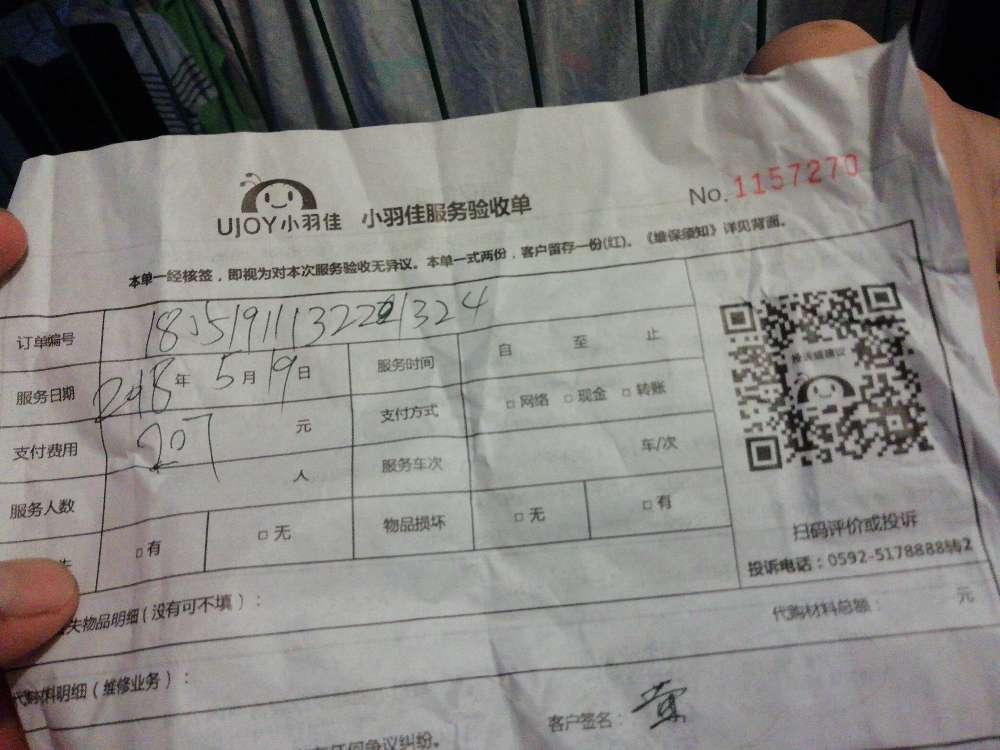 UJOY小羽佳 小羽佳服务验收单 No. 1157270
本单一经核签，即视为对本次服务验收无异议。本单一式两份，客户留存一份(红)。《维保须知》详见背面。
订单编号
服务日期 年 5 月 19 日 服务时间 自 至 止
支付费用 207 元 支付方式 □ 网络 □ 现金 □ 转账
服务人数 人 服务车次 车/次
□ 有 □ 无 物品损坏 □ 无 □ 有
投诉或建议
扫码评价或投诉
投诉电话：0592-5178888转2
失物品明细(没有可不填)：
代购材料总额： 元
代购材料明细(维修业务)：
任何争议纠纷。
客户签名：